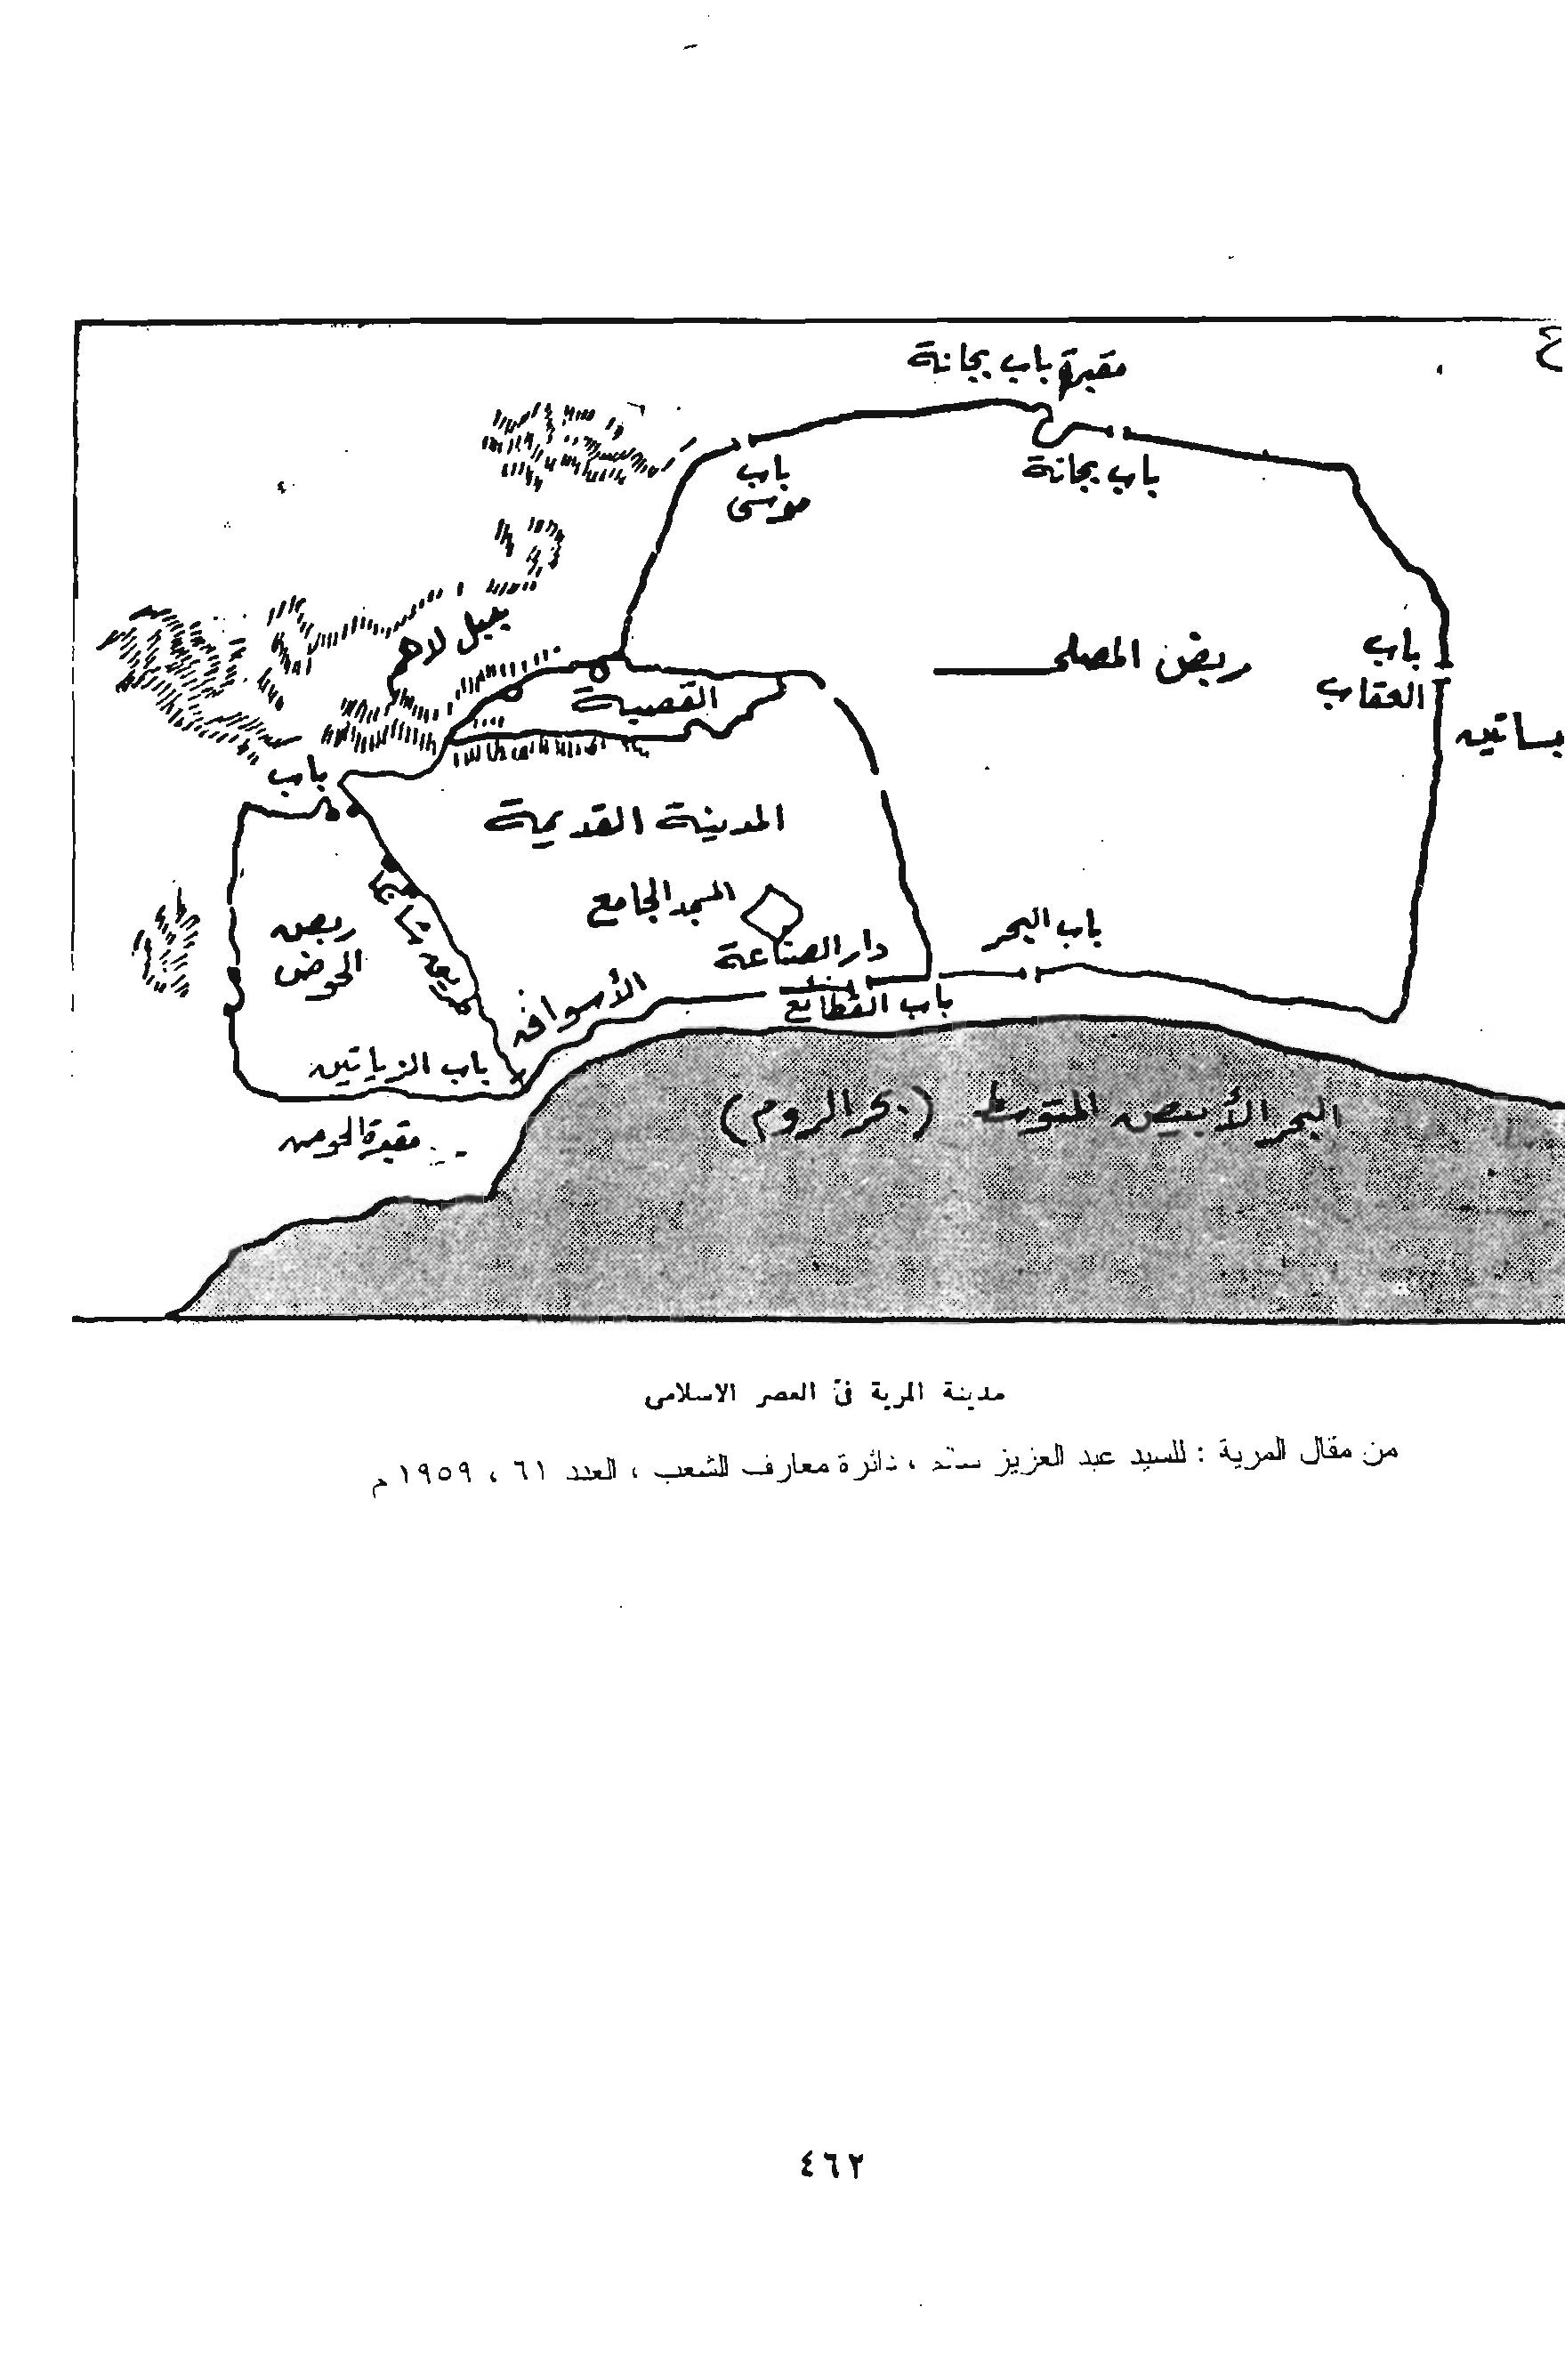 مقبرة باب بجانة
باب بجانة
باب
موسى
جبل لاهم
القصبة
ربض المصلى
باب
العقاب
بساتين
باب
المدينة القديمة
المسجد الجامع
دار الصناعة
باب البحر
باب القطايع
ربض
الحوض
الأسواق
باب الزياتين
مقبرة الحوض
البحر الأبيض المتوسط (بحر الروم)
مدينة المرية في العصر الاسلامى
من مقال المرية : للسيد عبد العزيز سالم ، دائرة معارف الشعب ، العدد ٦١ ، ١٩٥٩ م
٤٦٢